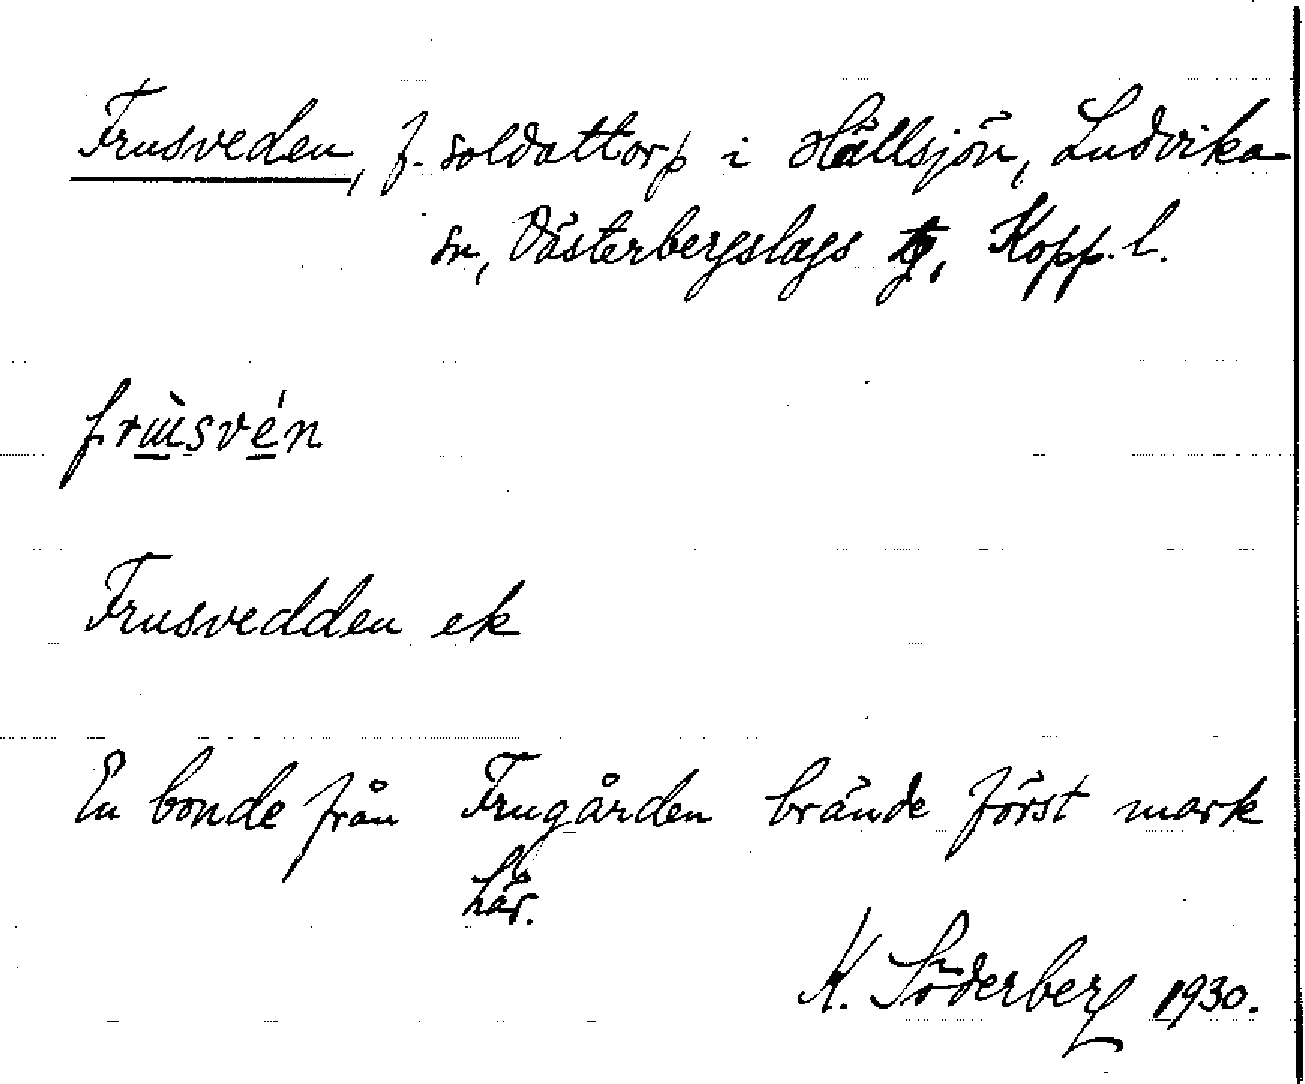 Frusveden, f. soldattorp i Hällsjön, Ludvika
sn, Västerbergslags tg, Kopp. l.
frùsvén
Frusvedden ek
En bonde från Frugården brände först mark
här.
K. Söderberg 1930.